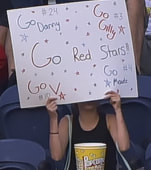 #24
Go Danny
Go #3
Gilly
Go Red Stars!!
Go V
#10
Go #4